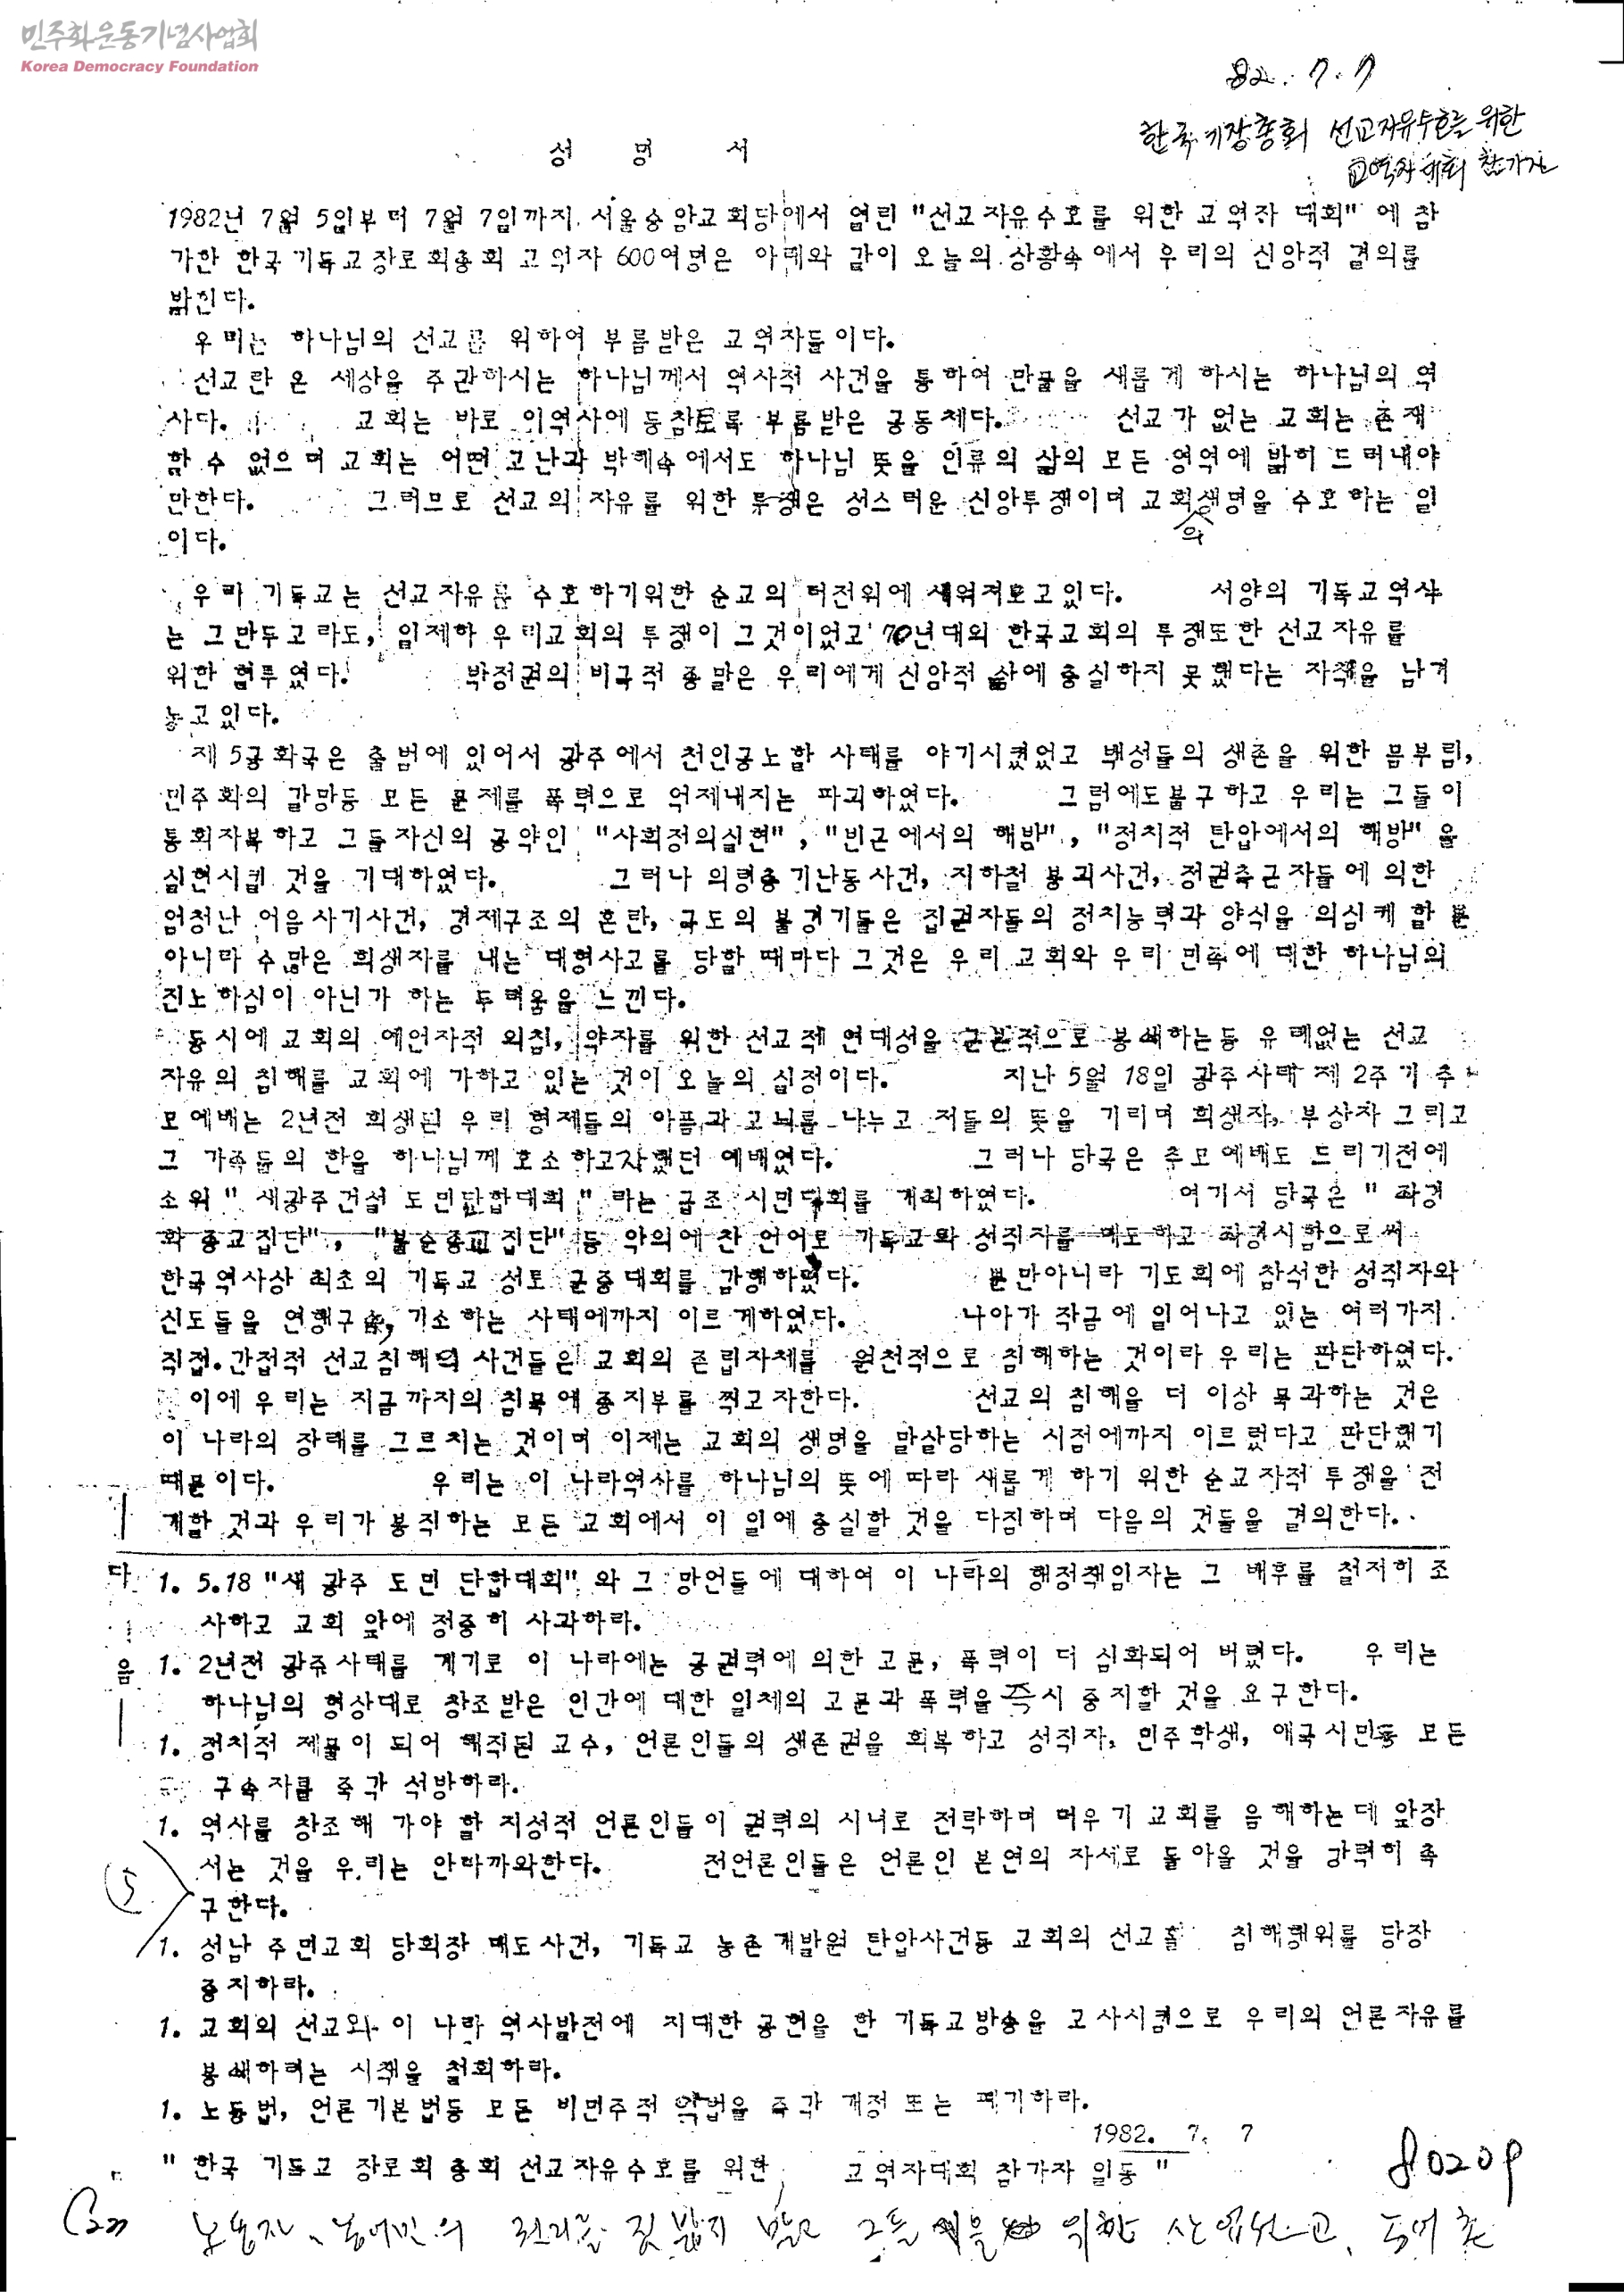 민주화운동기념사업회
Korea Democracy Foundation
82. 7. 7
한국기장총회 선교자유수호를 위한
교역자대회 참가자
성 명 서
1982년 7월 5일부터 7월 7일까지 서울송암교회당에서 열린 "선교자유수호를 위한 교역자 대회" 에 참
가한 한국기독교장로회총회 교역자 600여명은 아래와 같이 오늘의 상황속에서 우리의 신앙적 결의를
밝힌다.
우리는 하나님의 선교를 위하여 부름받은 교역자들이다.
선교란 온 세상을 주관하시는 하나님께서 역사적 사건을 통하여 만물을 새롭게 하시는 하나님의 역
사다. 교회는 바로 이역사에 동참토록 부름받은 공동체다. 선교가 없는 교회는 존재
할 수 없으며 교회는 어떤 고난과 박해속에서도 하나님 뜻을 인류의 삶의 모든 영역에 밝히 드러내야
만한다. 그러므로 선교의 자유를 위한 투쟁은 성스러운 신앙투쟁이며 교회의생명을 수호하는 일
이다.
우리 기독교는 선교자유를 수호하기위한 순교의 터전위에 세워져오고있다. 서양의 기독교역사
는 그만두고라도, 일제하 우리교회의 투쟁이 그것이었고 70년대의 한국교회의 투쟁또한 선교자유를
위한 혈투였다. 박정권의 비극적 종말은 우리에게 신앙적 삶에 충실하지 못했다는 자책을 남겨
놓고있다.
제 5공화국은 출범에 있어서 광주에서 천인공노할 사태를 야기시켰었고 백성들의 생존을 위한 몸부림,
민주화의 갈망등 모든 문제를 폭력으로 억제내지는 파괴하였다. 그럼에도불구하고 우리는 그들이
통회자복하고 그들자신의 공약인 "사회정의실현", "빈곤에서의 해방", "정치적 탄압에서의 해방"을
실현시킬 것을 기대하였다. 그러나 의령총기난동사건, 지하철 붕괴사건, 정권측근자들에 의한
엄청난 어음사기사건, 경제구조의 혼란, 극도의 불경기들은 집권자들의 정치능력과 양식을 의심케 할 뿐
아니라 수많은 희생자를 내는 대형사고를 당할 때마다 그것은 우리 교회와 우리 민족에 대한 하나님의
진노하심이 아닌가 하는 두려움을 느낀다.
동시에 교회의 예언자적 외침, 약자를 위한 선교적 연대성을 근본적으로 봉쇄하는등 유례없는 선교
자유의 침해를 교회에 가하고 있는 것이 오늘의 실정이다. 지난 5월 18일 광주사태 제 2주기 추
모예배는 2년전 희생된 우리 형제들의 아픔과 고뇌를 나누고 저들의 뜻을 기리며 희생자, 부상자 그리고
그 가족들의 한을 하나님께 호소하고자했던 예배였다. 그러나 당국은 추모예배도 드리기전에
소위 " 새광주건설 도민단합대회 " 라는 급조 시민대회를 개최하였다. 여기서 당국은 " 좌경
화 종교집단", "불순종교집단" 등 악의에 찬 언어로 기독교와 성직자를 매도하고 좌경시함으로써
한국역사상 최초의 기독교 성토 군중대회를 감행하였다. 뿐만아니라 기도회에 참석한 성직자와
신도들을 연행구속, 기소하는 사태에까지 이르게하였다. 나아가 작금에 일어나고 있는 여러가지
직접.간접적 선교침해의 사건들은 교회의 존립자체를 원천적으로 침해하는 것이라 우리는 판단하였다.
이에 우리는 지금까지의 침묵에 종지부를 찍고자한다. 선교의 침해을 더 이상 묵과하는 것은
이 나라의 장래를 그르치는 것이며 이제는 교회의 생명을 말살당하는 시점에까지 이르렀다고 판단했기
때문이다. 우리는 이 나라역사를 하나님의 뜻에 따라 새롭게 하기 위한 순교자적 투쟁을 전
개할 것과 우리가 봉직하는 모든 교회에서 이 일에 충실할 것을 다짐하며 다음의 것들을 결의한다.
다 음
1. 5.18 "새 광주 도민 단합대회" 와 그 망언들에 대하여 이 나라의 행정책임자는 그 배후를 철저히 조
사하고 교회 앞에 정중히 사과하라.
1. 2년전 광주사태를 계기로 이 나라에는 공권력에 의한 고문, 폭력이 더 심화되어 버렸다. 우리는
하나님의 형상대로 창조받은 인간에 대한 일체의 고문과 폭력을 즉시 중지할 것을 요구한다.
1. 정치적 제물이 되어 해직된 교수, 언론인들의 생존권을 회복하고 성직자, 민주학생, 애국시민등 모든
구속자를 즉각 석방하라.
1. 역사를 창조해 가야 할 지성적 언론인들이 권력의 시녀로 전락하며 더우기 교회를 음해하는데 앞장
서는 것을 우리는 안타까와한다. 전언론인들은 언론인 본연의 자세로 돌아올 것을 강력히 촉
구한다.
⑤
1. 성남 주민교회 당회장 매도사건, 기독교 농촌개발원 탄압사건등 교회의 선교를 침해행위를 당장
중지하라.
1. 교회의 선교와 이 나라 역사발전에 지대한 공헌을 한 기독교방송을 고사시킴으로 우리의 언론자유를
봉쇄하려는 시책을 철회하라.
1. 노동법, 언론기본법등 모든 비민주적 악법을 즉각 개정 또는 폐기하라.
1982. 7. 7
" 한국 기독교 장로회 총회 선교자유수호를 위한 교역자대회 참가자 일동 "
80209
노동자, 농어민의 권리를 짓밟지 말고 그들을 위한 산업선교, 농어촌